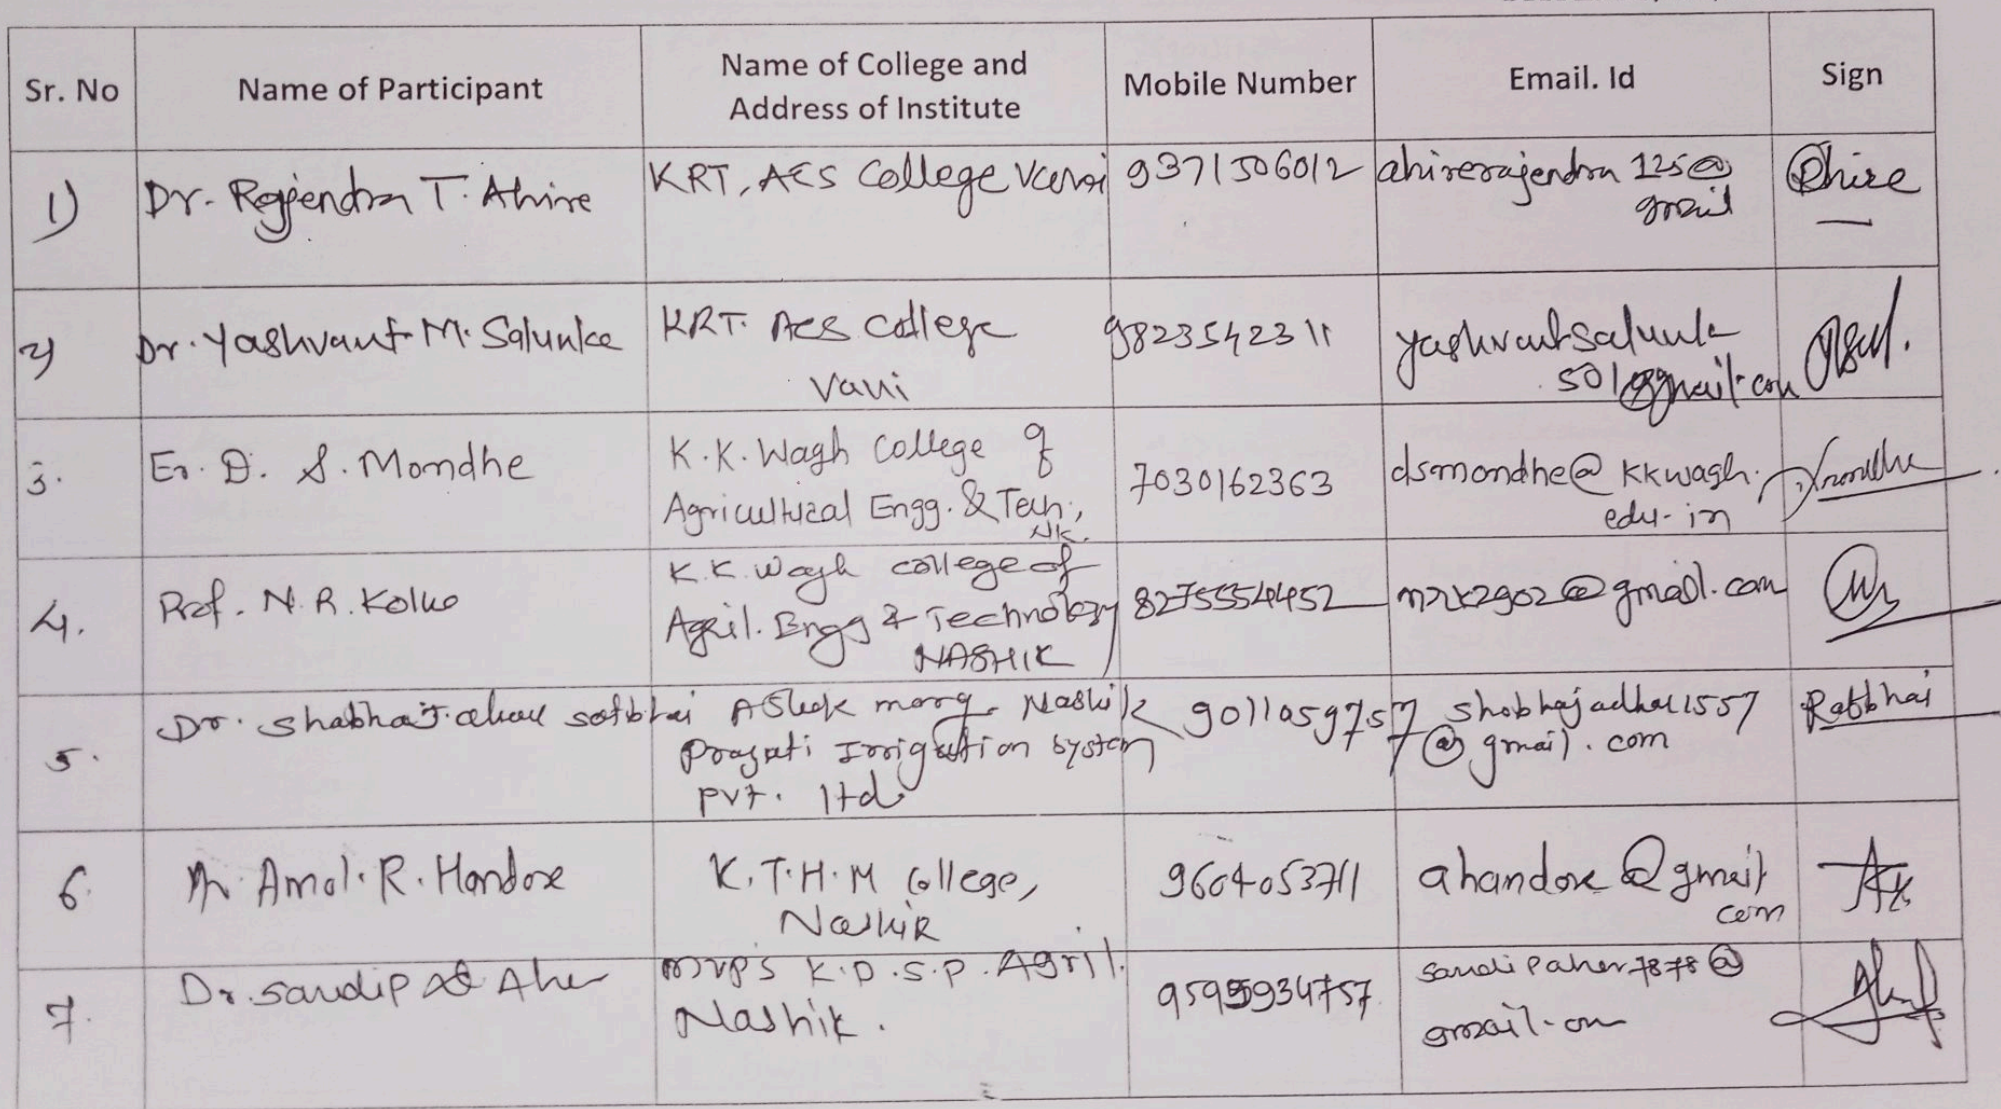 Sr. No
Name of Participant
Name of College and
Address of Institute
Mobile Number
Email. Id
Sign
1)
Dr. Rajendra T. Ahire
KRT, ACS College Vani
9371506012
ahirerajendra 125@
gmail
Ahire
2)
Dr. Yashvant M. Salunke
KRT. ACS College
Vani
9823542311
yashvantsalunke
501@gmail.com
3.
Er. D. S. Mondhe
K.K. Wagh College of
Agricultural Engg. & Tech.,
NK.
7030162363
dsmondhe@kkwagh.
edu.in
4.
Prof. N. R. Kolhe
K.K. Wagh college of
Agril. Engg & Technology
NASHIK
8275554452
nrk2902@gmail.com
5.
Dr. Shobha
Ashok marg, Nashik
Pragati Irrigation System
pvt. ltd
9011059757
shobhajadhav1557
@gmail.com
6.
Amol. R. Handore
K.T.H.M College,
Nashik
9604053711
ahandore@gmail
com
7.
Dr. Sandip Aher
mvp's K.D.S.P. Agril.
Nashik.
9595934757
sandipaher7878@
gmail.com